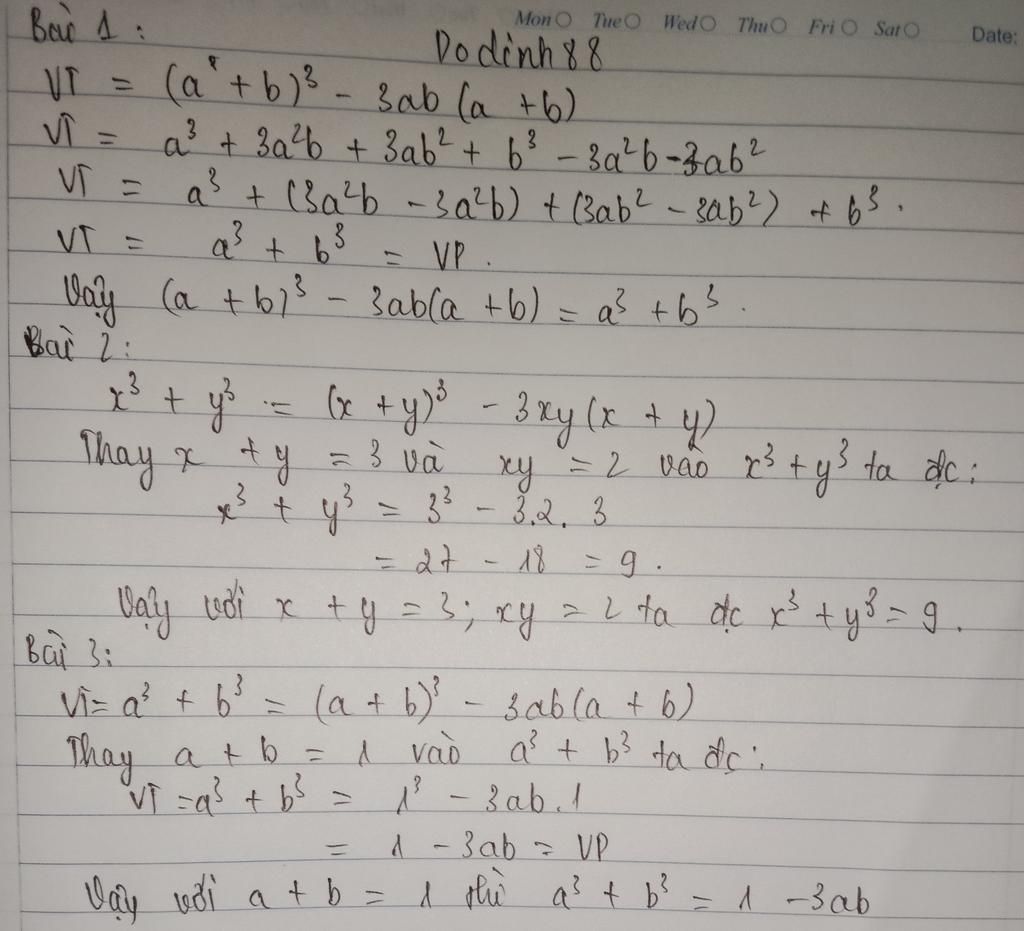 Mon Tue Wed Thu Fri Sat Date:
Bài 1:
Dodinh88
VT = (a + b)³ - 3ab (a + b)
VT = a³ + 3a²b + 3ab² + b³ - 3a²b - 3ab²
VT = a³ + (3a²b - 3a²b) + (3ab² - 3ab²) + b³.
VT = a³ + b³ = VP.
Vậy (a + b)³ - 3ab(a + b) = a³ + b³.
Bài 2:
x³ + y³ = (x + y)³ - 3xy (x + y)
Thay x + y = 3 và xy = 2 vào x³ + y³ ta đc:
x³ + y³ = 3³ - 3.2.3
= 27 - 18 = 9.
Vậy với x + y = 3; xy = 2 ta đc x³ + y³ = 9.
Bài 3:
VT = a³ + b³ = (a + b)³ - 3ab(a + b)
Thay a + b = 1 vào a³ + b³ ta đc:
VT = a³ + b³ = 1³ - 3ab.1
= 1 - 3ab = VP
Vậy với a + b = 1 thì a³ + b³ = 1 - 3ab